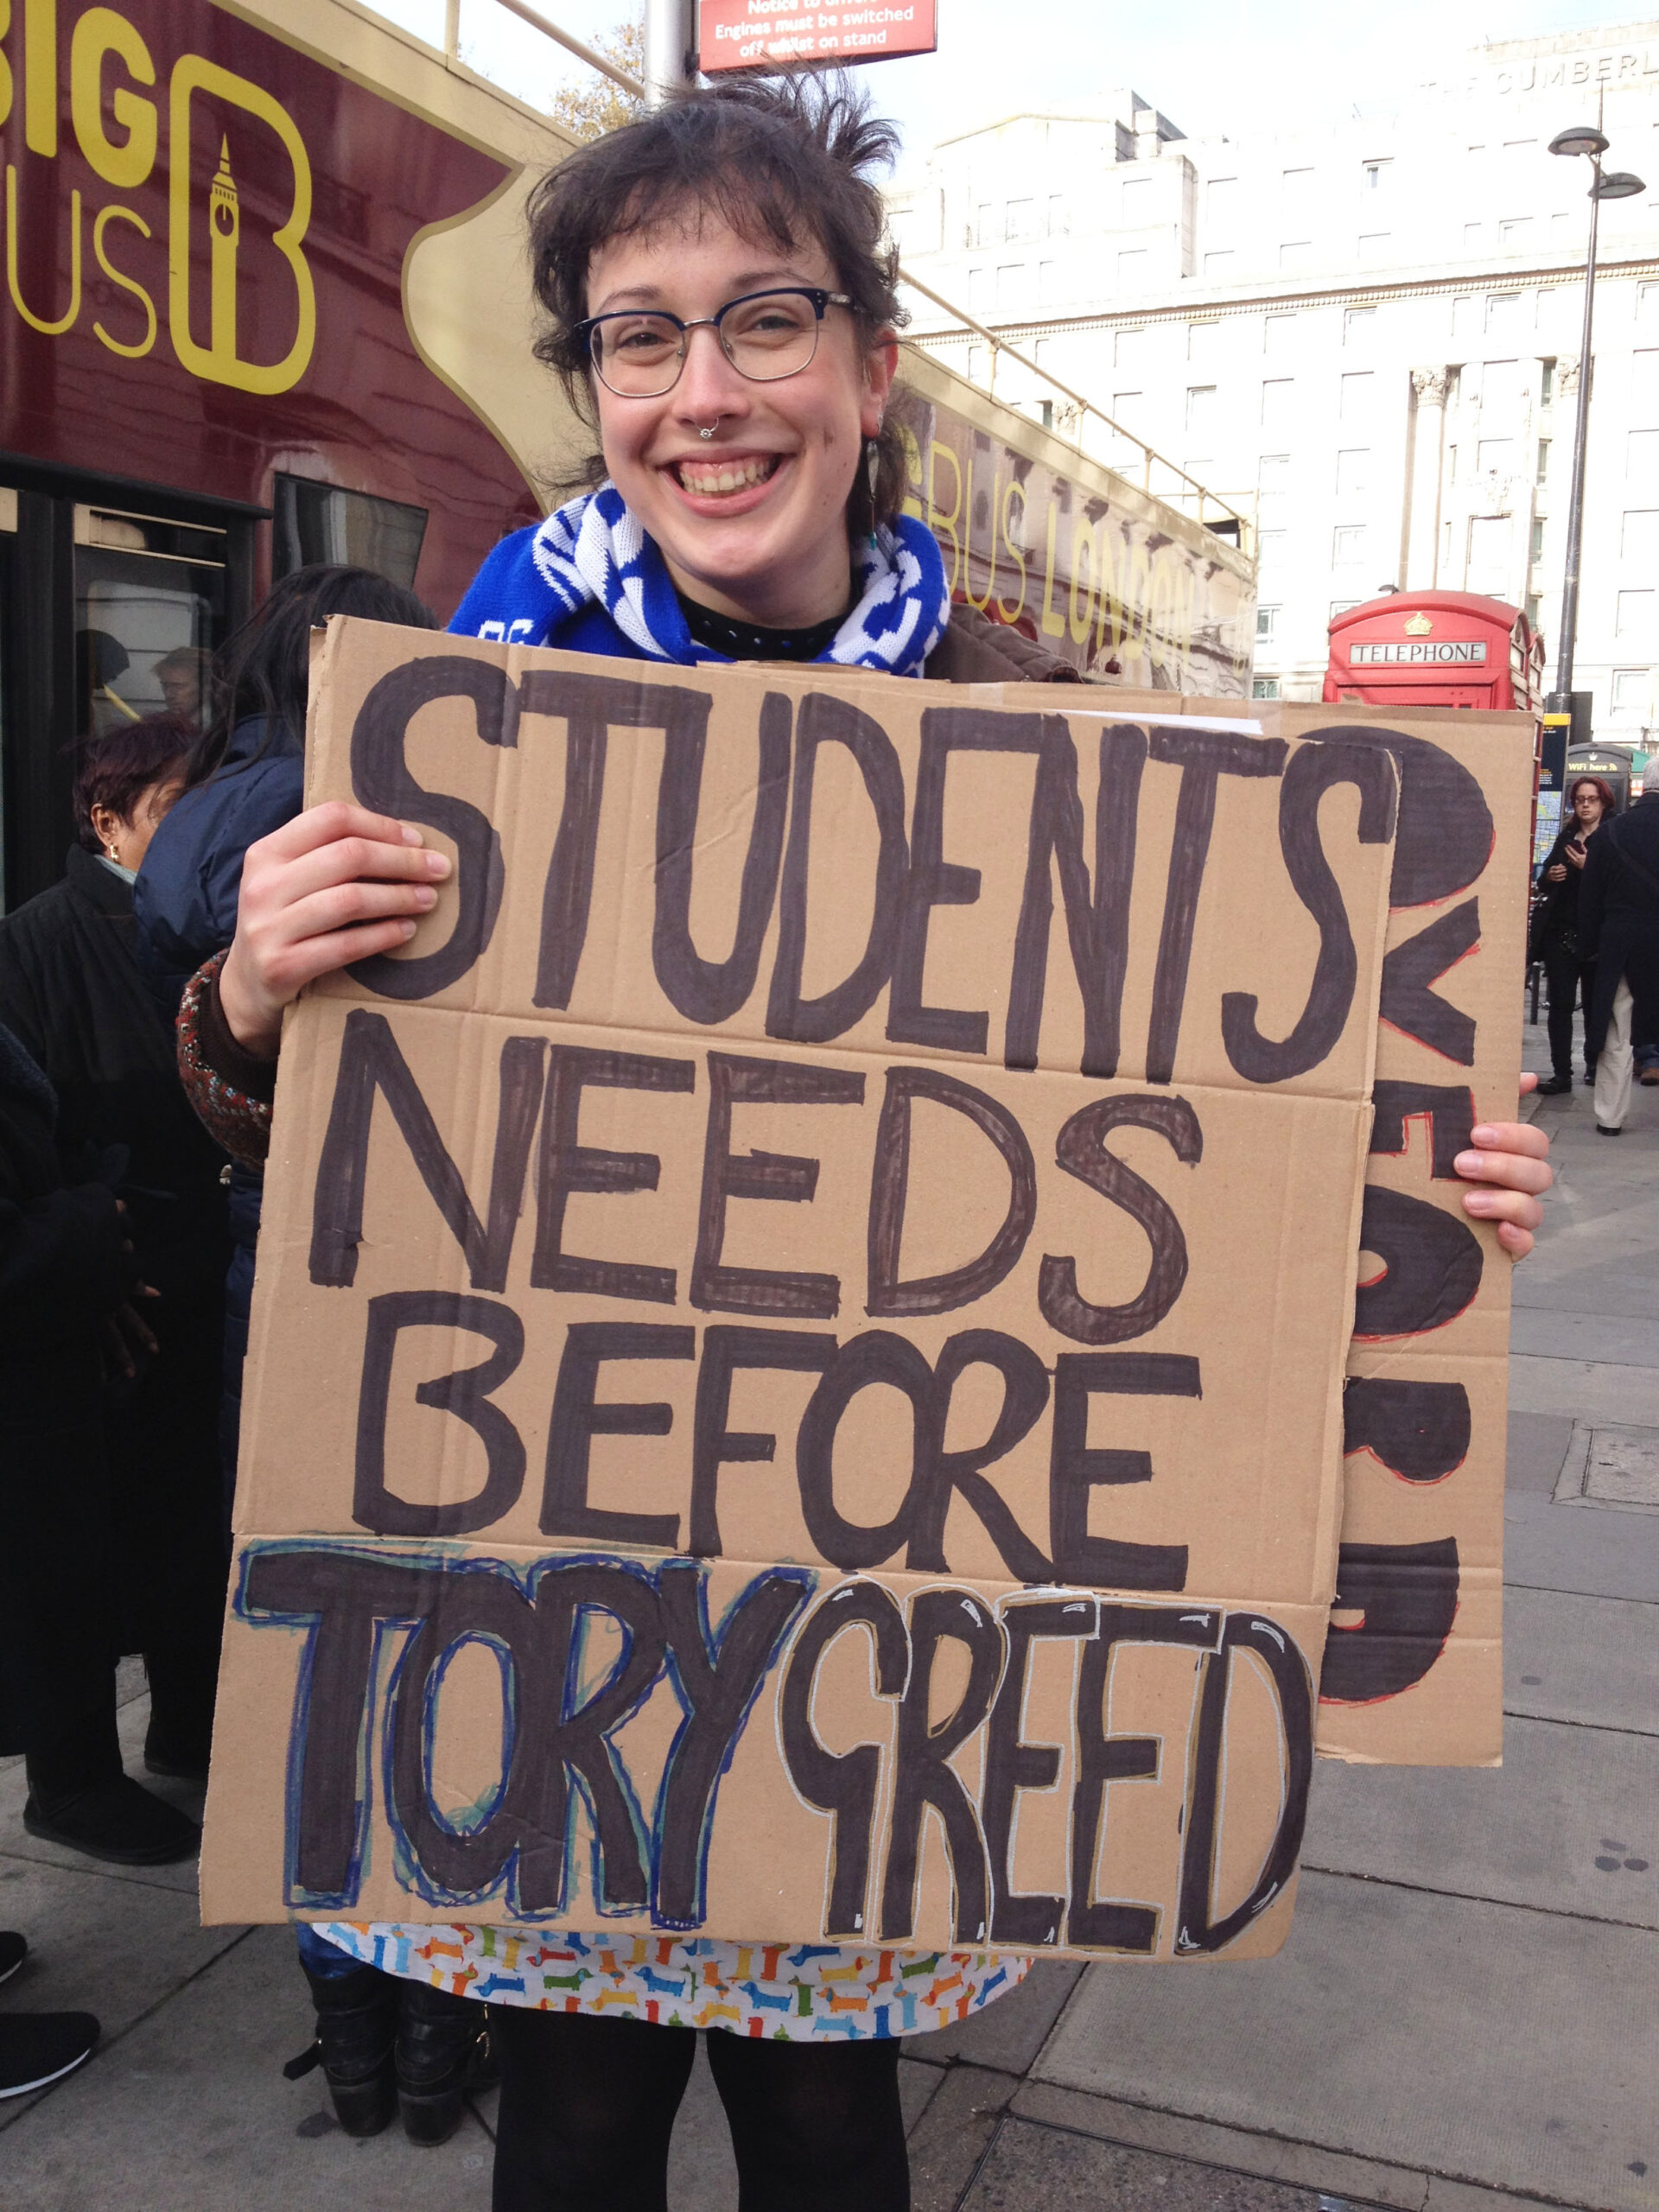 Notice to drivers
Engines must be switched
off whilst on stand
BIG
BUS
BUS LONDON
THE CUMBERL
TELEPHONE
WiFi here
STUDENTS
NEEDS
BEFORE
TORY GREED
OXFORD